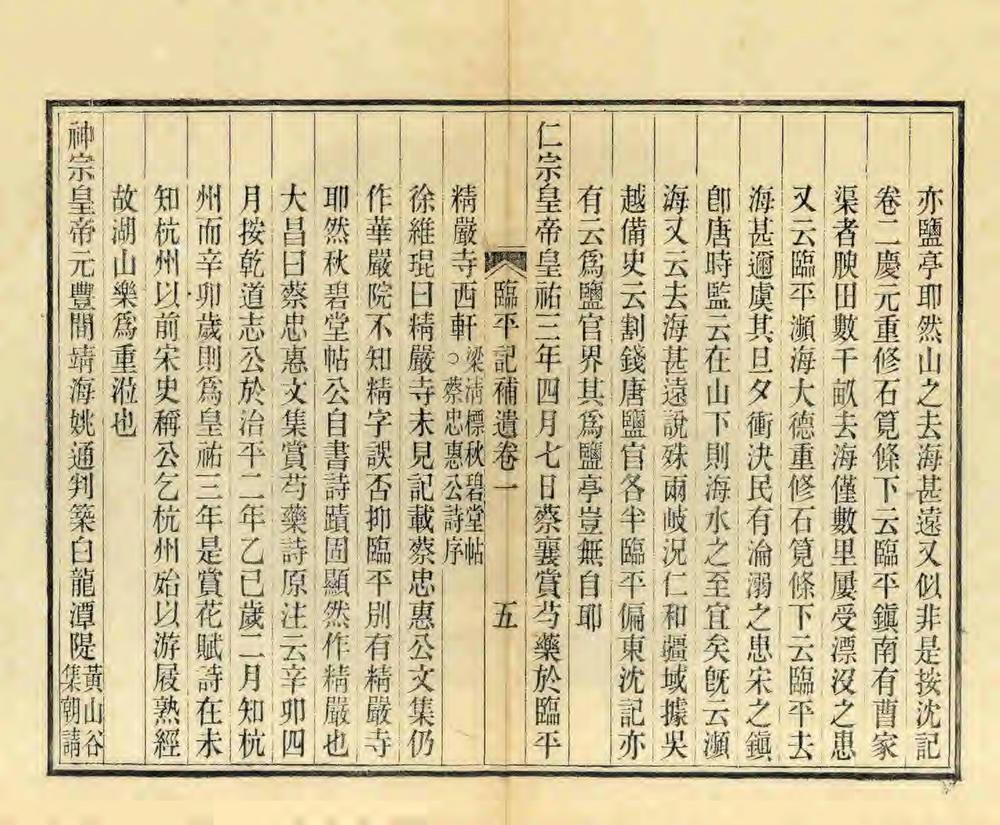 亦鹽亭耶然山之去海甚遠又似非是按沈記
卷二慶元重修石筧條下云臨平鎭南有曹家
渠者腴田數千畝去海僅數里屢受漂沒之患
又云臨平瀕海大德重修石筧條下云臨平去
海甚邇虞其旦夕衝決民有淪溺之患宋之鎭
卽唐時監云在山下則海水之至宜矣旣云瀕
海又云去海甚遠說殊兩岐況仁和疆域據吳
越備史云割錢唐鹽官各半臨平偏東沈記亦
有云爲鹽官界其爲鹽亭豈無自耶
仁宗皇帝皇祐三年四月七日蔡襄賞芍藥於臨平
臨平記補遺卷一 五
精嚴寺西軒梁淸標秋碧堂帖
○蔡忠惠公詩序
徐維琨曰精嚴寺未見記載蔡忠惠公文集仍
作華嚴院不知精字誤否抑臨平別有精嚴寺
耶然秋碧堂帖公自書詩蹟固顯然作精嚴也
大昌曰蔡忠惠文集賞芍藥詩原注云辛卯四
月按乾道志公於治平二年乙巳歲二月知杭
州而辛卯歲則爲皇祐三年是賞花賦詩在未
知杭州以前宋史稱公乞杭州始以游屐熟經
故湖山樂爲重涖也
神宗皇帝元豐間靖海姚通判築白龍潭隄黃山谷
集朝請